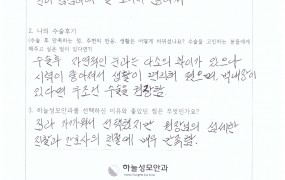 2. 나의 수술후기
(수술 후 만족하는 점, 주변의 반응, 생활은 어떻게 바뀌셨나요? 수술을 고민하는 분들에게
해주고 싶은 말이 있다면?)
수술후 자연적인 눈과는 다소의 차이가 있으나
시력이 좋아져서 생활이 편리해 졌으며, 백내장이
있다면 우선 수술을 권장함
3. 하늘성모안과를 선택하신 이유와 좋았던 점은 무엇인가요?
집과 가까워서 선택했지만 원장님의 섬세한
진찰과 간호사의 친절에 매우 만족함.
하늘성모안과